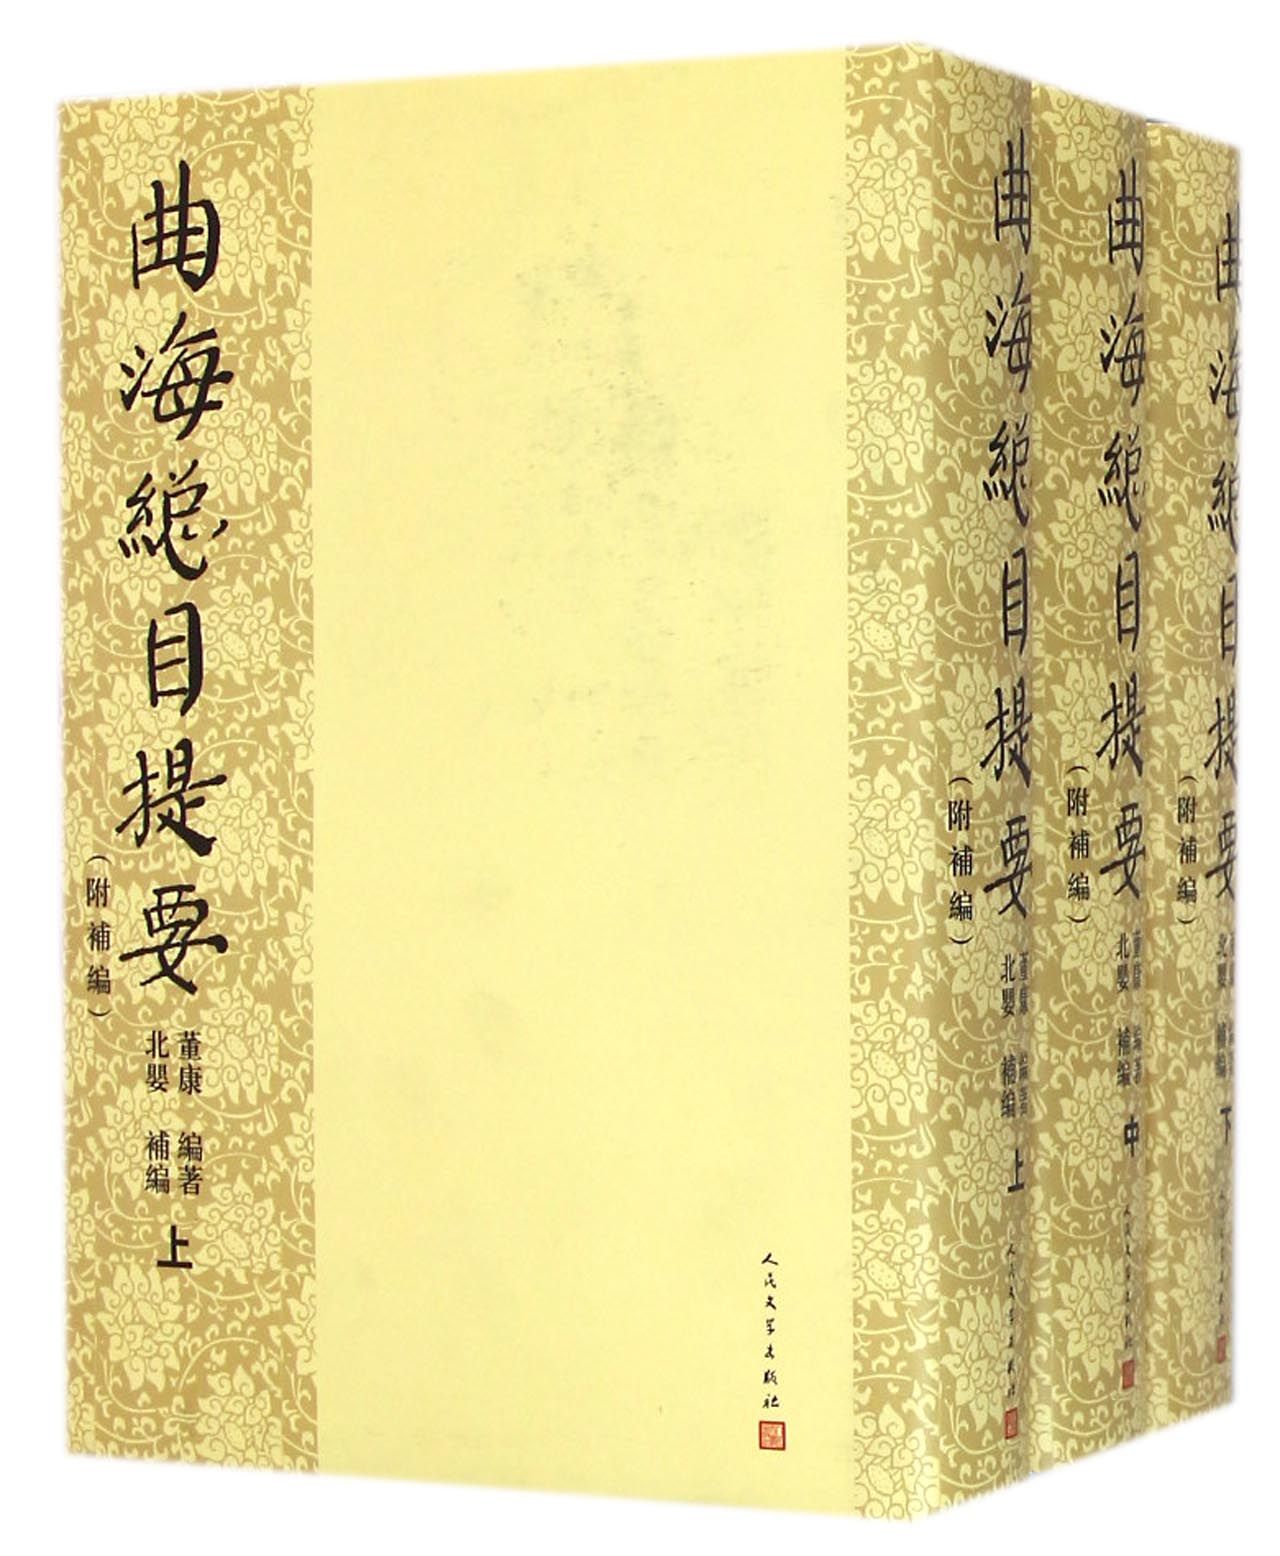 曲海総目提要
(附補編)
董康 編著
北嬰 補編
上
人民文学出版社
曲海総目提要
(附補編)
董康 編著
北嬰 補編
上
人民文学出版社
曲海総目提要
(附補編)
董康 編著
北嬰 補編
中
人民文学出版社
曲海総目提要
(附補編)
北嬰 補編
下